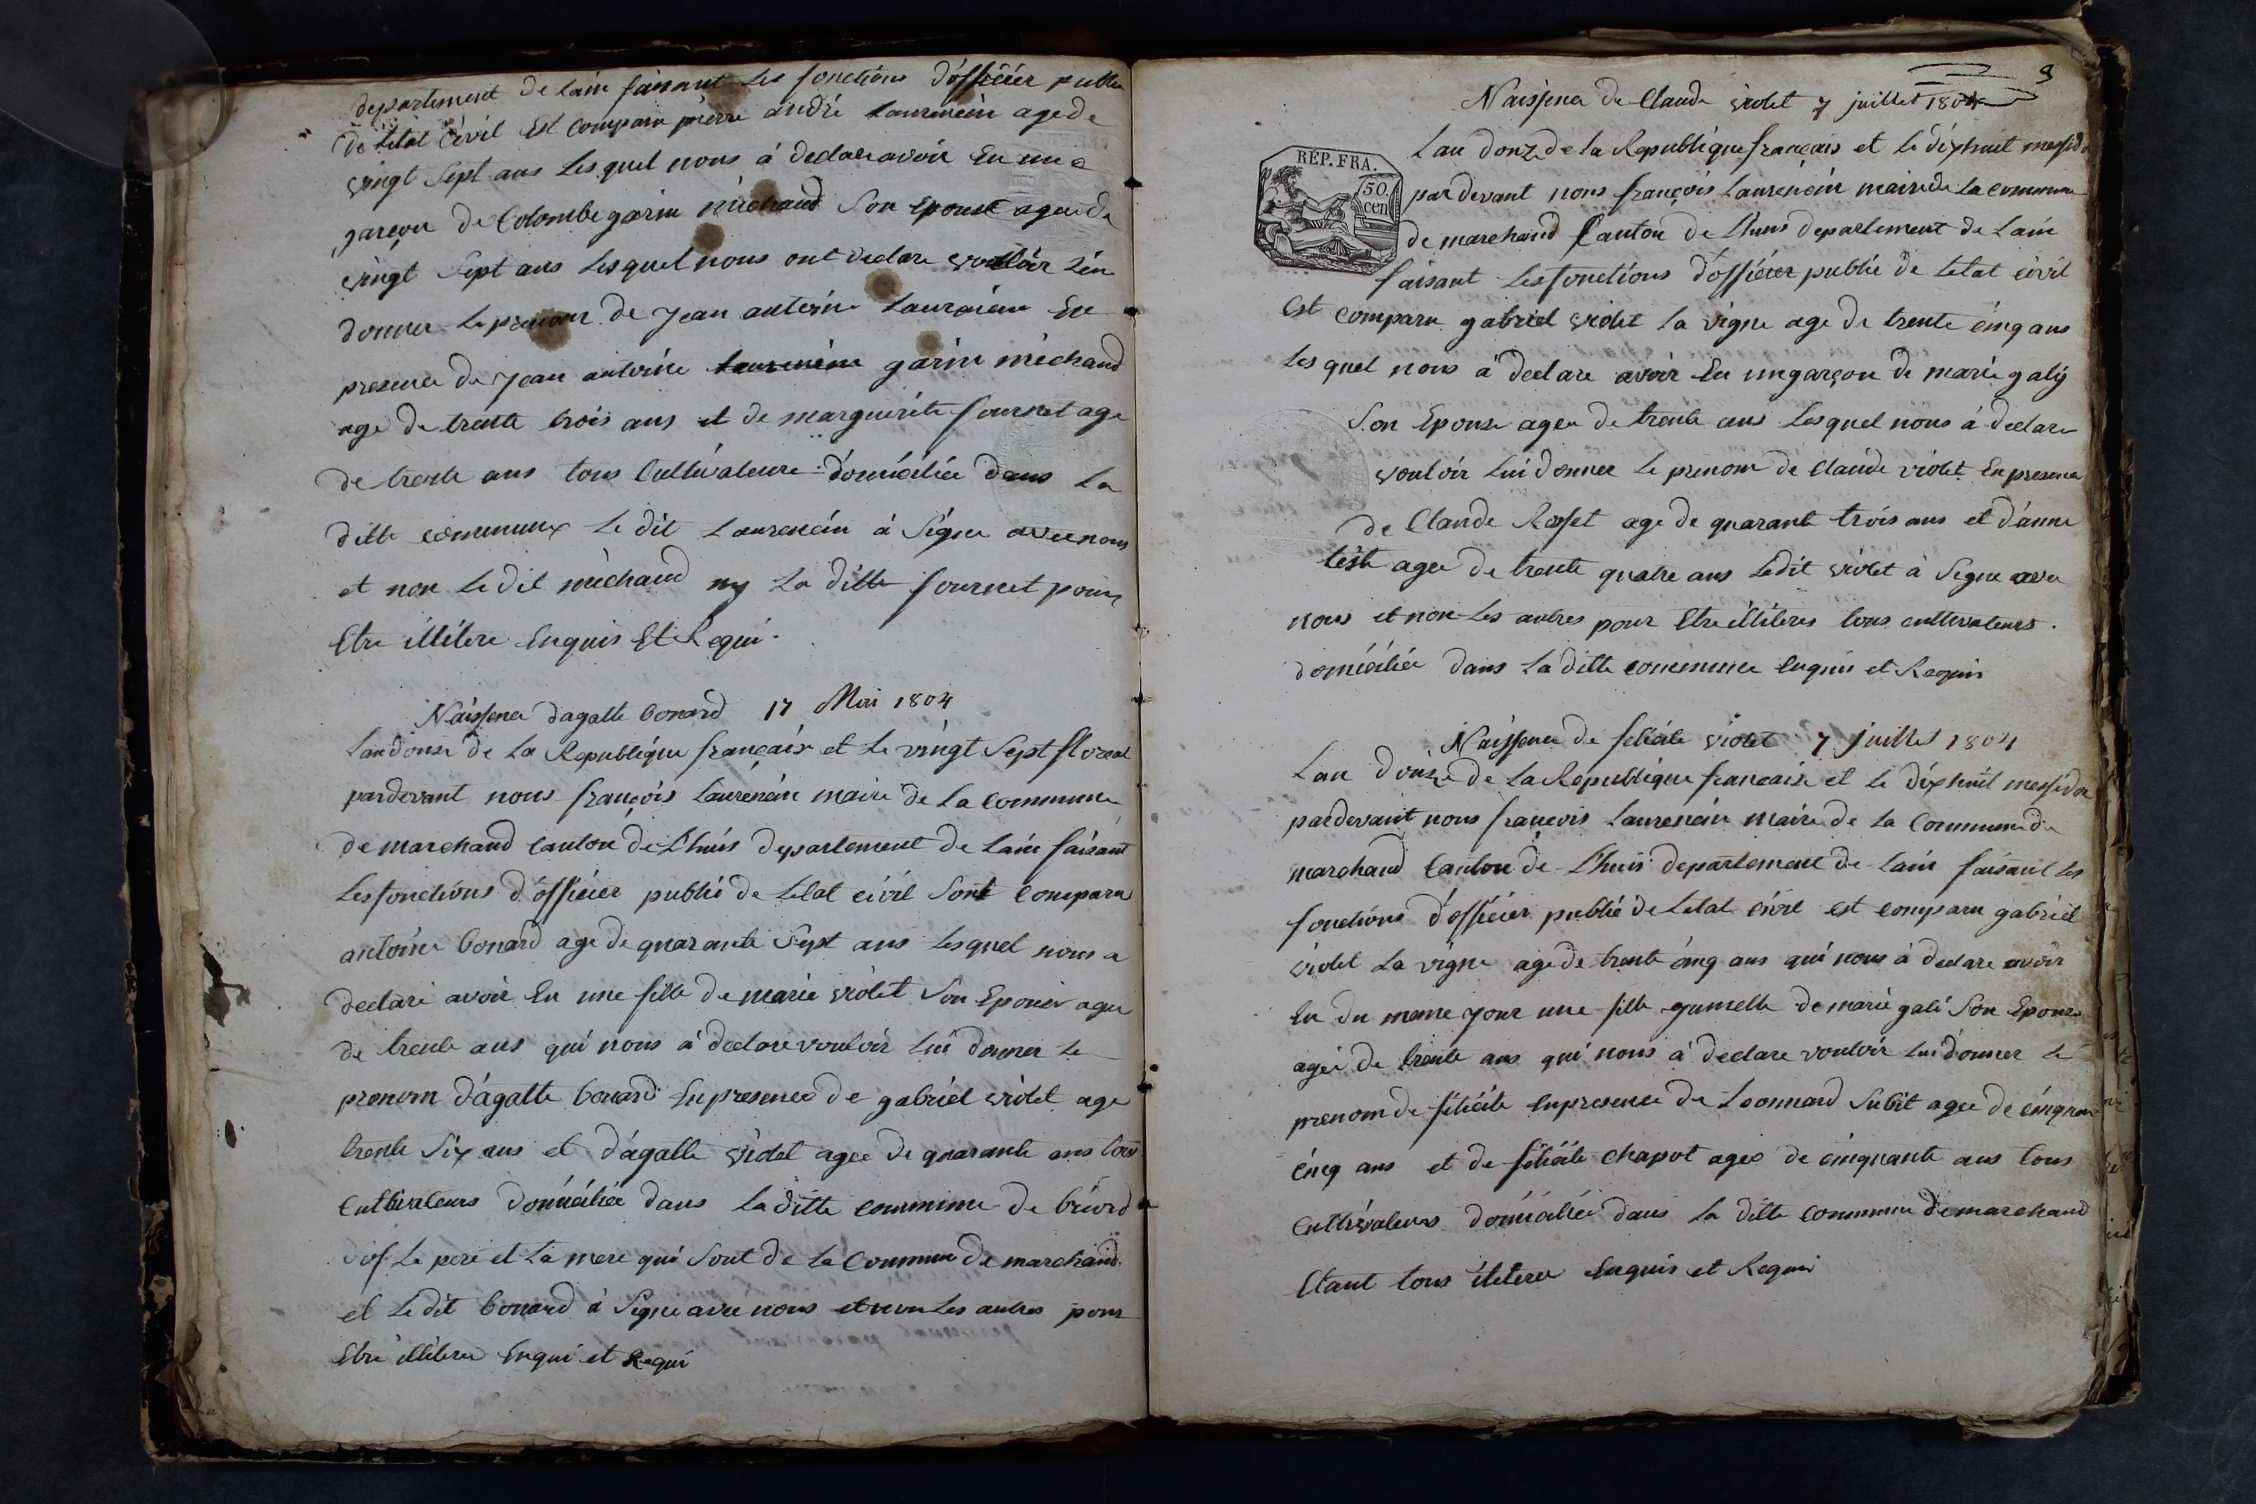 departement de lain faisant les fonctions d'officier public
de letat civil Est comparu pierre andré laurencin age de
vingt sept ans lesquel nous á declare avoir Eu une
garçon de Colombe garin michaud son epouse agee de
vingt sept ans lesquel nous ont declare vouloir léu
donner le prenom de jean antoine Laurencin En
presence de jean antoine laurencin garin michaud
age de trente trois ans et de marguerite fournet age
de trente ans tous Cultivateure domiciliée dans La
ditte commune le dit Laurencin á signe avec nous
et non le dit michaud ny La ditte fournet pour
Etre illitere Enquis Et Requi.
Naissence dagatte bonard 17 Mai 1804
Lan douse de La Republique française et le vingt sept floreal
pardevant nous françois Laurencin maire de La commune
de marchand canton de L'huis departement de lain faisant
les fonctions d'officier public de letat civil sont comparu
antoine bonard age de quarante sept ans lesquel nous a
declaré avoir Eu une fille de marie violet son Epouse agee
de trente ans qui nous á declare vouloir lui donner le
prenom d'agatte bonard En presence de gabriel violet age
trente six ans et d'agatte violet agee de quarante ans tous
Cultivateurs domiciliée dans la ditte commune de briord
sof le pere et la mere qui sont de la Commune de marchand.
et le dit bonard á signe avec nous et non les autres pour
Etre illitere Enqui et Requi
9
Naissence de Claude violet 7 juillet 1804
Lan donze de la Republique français et le dixhuit messidor
pardevant nous françois Laurencin maire de la commune
RÉP. FRA.
50
cen
de marchand Canton de Lhuis departement de Lain
faisant les fonctions d'officier public de letat civil
Est comparu gabriel violet la vigne age de trente cinq ans
lesquel nous á declare avoir Eu un garçon de marie galy
son Epouse agee de trente ans lesquel nous á declare
vouloir lui donnee le prenom de Claude violet En presence
de Claude Rosset age de quarante trois ans et d'anne
teste agee de trente quatre ans ledit violet á signe avec
nous et non les autres pour Etre illiteres tous cultivateurs.
domiciliée dans la ditte commune Enquis et Requis
Naissence de felicite violet 7 juillet 1804
Lan douze de la Republique française et le dixhuit messidor
pardevant nous françois Laurencin maire de la Commune de
marchand Canton de L'huis departement de lain faisant les
fonctions d'officier public de letat civil est comparu gabriel
violet La vigne age de trente cinq ans qui nous á declare avoir
Eu du meme jour une fille gumelle de marie gali son Epouse
agée de trente ans qui nous á declare vouloir lui donner le
prenom de felicite En presence de Leonnard subit agee de cinquante
cinq ans et de felicite chapot agee de cinquante ans tous
Cultivateurs domiciliée dans la ditte commune de marchand
Etant tous ilitere Enquis et Requi